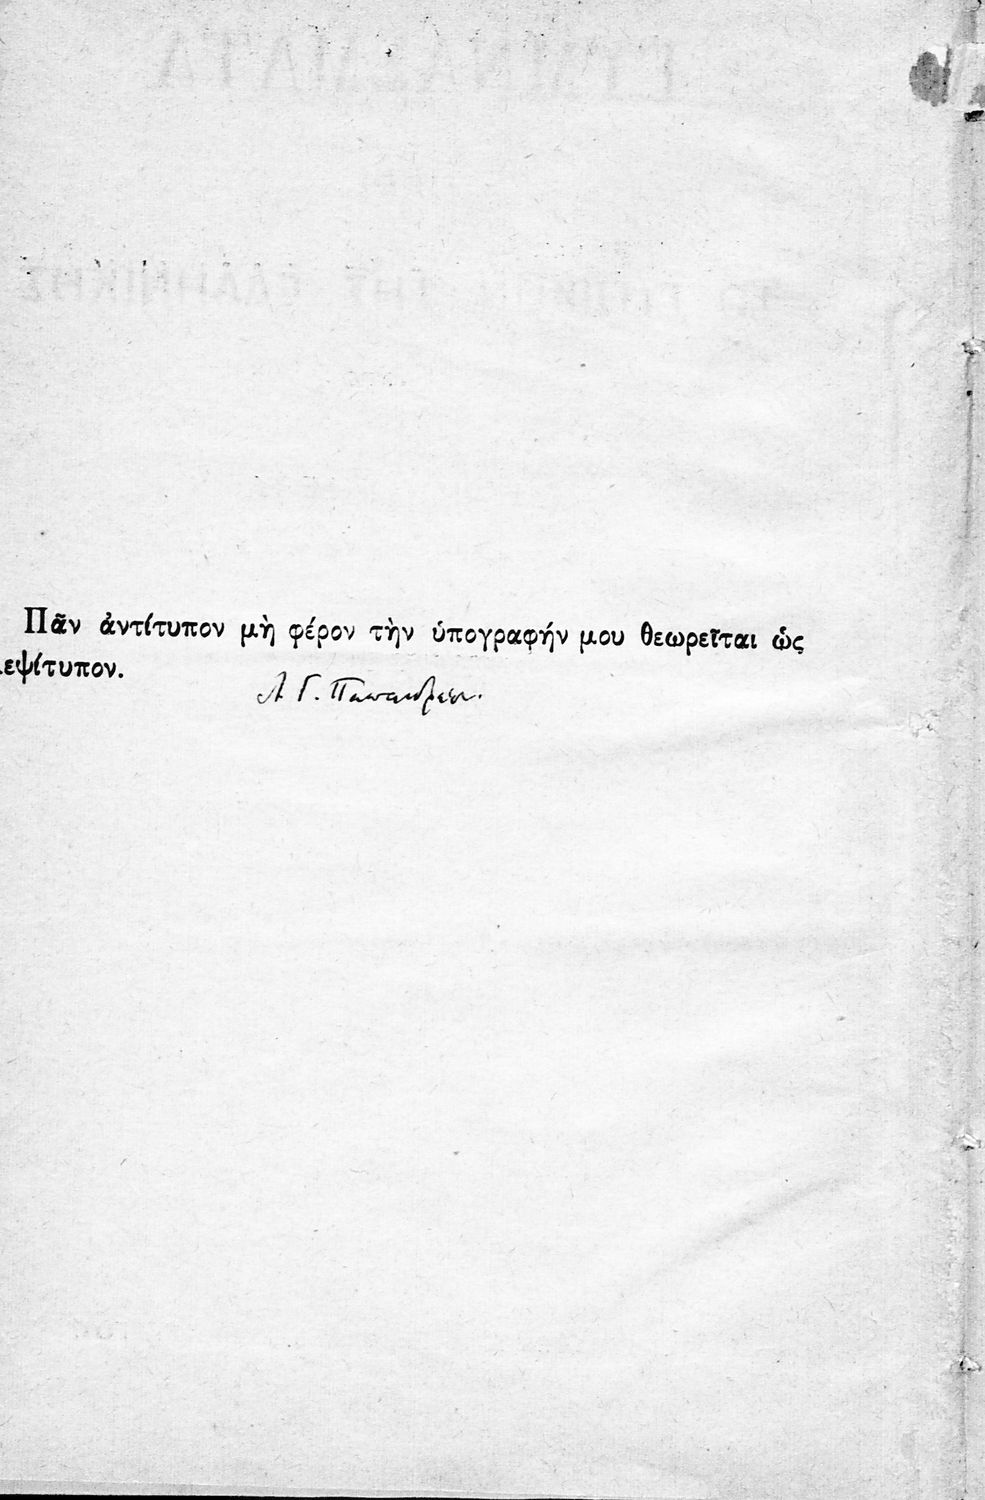 Πᾶν ἀντίτυπον μὴ φέρον τὴν ὑπογραφήν μου θεωρεῖται ὡς
εψίτυπον.
Λ Γ.